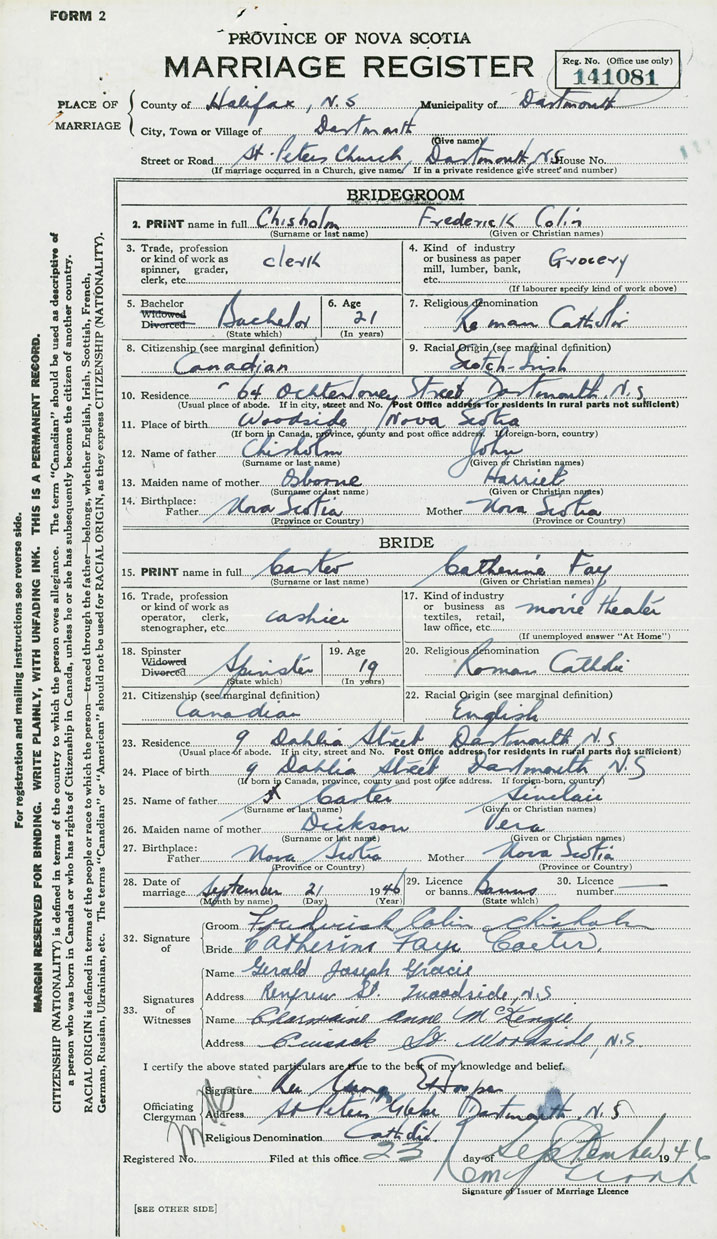 FORM 2
PROVINCE OF NOVA SCOTIA
MARRIAGE REGISTER
Reg. No. (Office use only)
141081
PLACE OF MARRIAGE
County of Halifax, N.S Municipality of Dartmouth
City, Town or Village of Dartmouth
(Give name)
Street or Road St. Peters Church, Dartmouth, N.S. House No.
(If marriage occurred in a Church, give name) If in a private residence give street and number)
BRIDEGROOM
2. PRINT name in full Chisholm Frederick Colin
(Surname or last name) (Given or Christian names)
3. Trade, profession or kind of work as spinner, grader, clerk, etc. clerk
4. Kind of industry or business as paper mill, lumber, bank, etc. Grocery
(If labourer specify kind of work above)
5. Bachelor Widowed Divorced Bachelor
(State which)
6. Age 21
(In years)
7. Religious denomination Roman Catholic
8. Citizenship (see marginal definition) Canadian
9. Racial Origin (see marginal definition) Scotch-Irish
10. Residence 64 Ochterloney Street Dartmouth N.S
(Usual place of abode. If in city, street and No. Post Office address for residents in rural parts not sufficient)
11. Place of birth Woodside, Nova Scotia
(If born in Canada, province, county and post office address. If foreign-born, country)
12. Name of father Chisholm John
(Surname or last name) (Given or Christian names)
13. Maiden name of mother Osborne Harriet
(Surname or last name) (Given or Christian names)
14. Birthplace: Father Nova Scotia Mother Nova Scotia
(Province or Country) (Province or Country)
BRIDE
15. PRINT name in full Carter Catherine Fay
(Surname or last name) (Given or Christian names)
16. Trade, profession or kind of work as operator, clerk, stenographer, etc cashier
17. Kind of industry or business as textiles, retail, law office, etc. movie theater
(If unemployed answer "At Home")
18. Spinster Widowed Divorced Spinster
(State which)
19. Age 19
(In years)
20. Religious denomination Roman Catholic
21. Citizenship (see marginal definition) Canadian
22. Racial Origin (see marginal definition) English
23. Residence 9 Dahlia Street Dartmouth N.S
(Usual place of abode. If in city, street and No. Post Office address for residents in rural parts not sufficient)
24. Place of birth 9 Dahlia Street Dartmouth, N.S
(If born in Canada, province, county and post office address. If foreign-born, country)
25. Name of father Carter Sinclair
(Surname or last name) (Given or Christian names)
26. Maiden name of mother Dickson Vera
(Surname or last name) (Given or Christian names)
27. Birthplace: Father Nova Scotia Mother Nova Scotia
(Province or Country) (Province or Country)
28. Date of marriage September 21 1946
(Month by name) (Day) (Year)
29. Licence or banns Banns
(State which)
30. Licence number
32. Signature of
Groom Frederick Colin Chisholm
Bride Catherine Faye Carter.
33. Signatures of Witnesses
Name Gerald Joseph Gracie
Address Renfrew St. Woodside, N.S
Name Charmaine Anne McKenzie
Address Cusack St. Woodside, N.S.
I certify the above stated particulars are true to the best of my knowledge and belief.
Officiating Clergyman
Signature
Address St Peters Glebe Dartmouth, N.S
Religious Denomination Catholic
Registered No. Filed at this office 23 day of September 1946
Signature of Issuer of Marriage Licence
[SEE OTHER SIDE]
For registration and mailing instructions see reverse side.
MARGIN RESERVED FOR BINDING. WRITE PLAINLY, WITH UNFADING INK. THIS IS A PERMANENT RECORD.
CITIZENSHIP (NATIONALITY) is defined in terms of the country to which the person owes allegiance. The term "Canadian" should be used as descriptive of
a person who was born in Canada or who has rights of Citizenship in Canada, unless he or she has subsequently become the citizen of another country.
RACIAL ORIGIN is defined in terms of the people or race to which the person—traced through the father—belongs, whether English, Irish, Scottish, French,
German, Russian, Ukrainian, etc. The terms "Canadian" or "American" should not be used for RACIAL ORIGIN, as they express CITIZENSHIP (NATIONALITY).